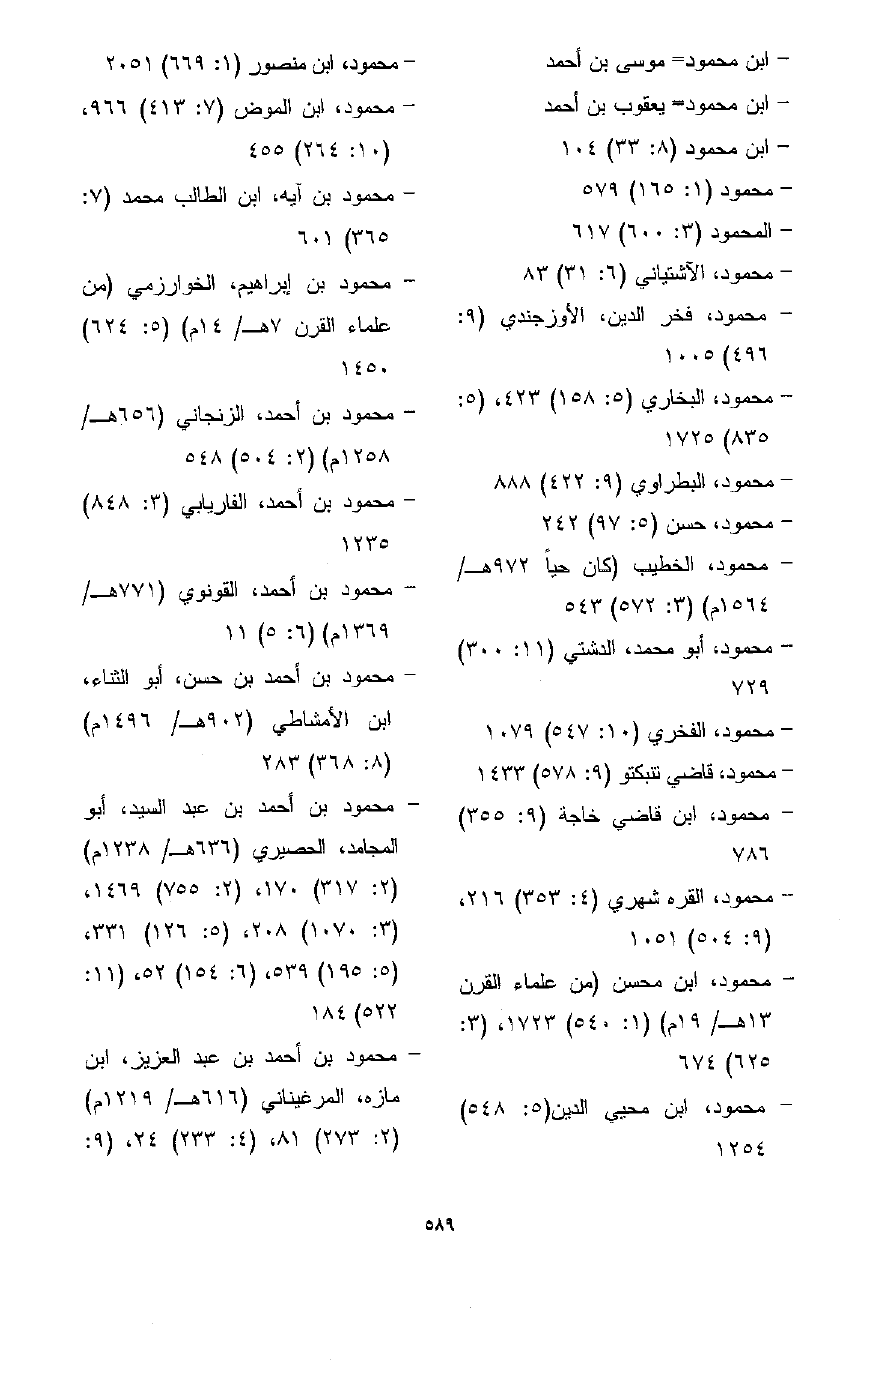 - ابن محمود= موسى بن أحمد
- ابن محمود= يعقوب بن أحمد
- ابن محمود (٨: ٣٣) ١٠٤
- محمود (١: ١٦٥) ٥٧٩
- المحمود (٣: ٦٠٠) ٦١٧
- محمود، الآشتياني (٦: ٣١) ٨٣
- محمود، فخر الدين، الأوزجندي (٩:
٤٩٦) ١٠٠٥
- محمود، البخاري (٥: ١٥٨) ٤٢٣، (٥:
٨٣٥) ١٧٢٥
- محمود، البطراوي (٩: ٤٢٢) ٨٨٨
- محمود، حسن (٥: ٩٧) ٢٤٢
- محمود، الخطيب (كان حياً ٩٧٢هـ/
١٥٦٤م) (٣: ٥٧٢) ٥٤٣
- محمود، أبو محمد، الدشتي (١١: ٣٠٠)
٧٢٩
- محمود، الفخري (١٠: ٥٤٧) ١٠٧٩
- محمود، قاضي تنبكتو (٩: ٥٧٨) ١٤٣٣
- محمود، ابن قاضي خاجة (٩: ٣٥٥)
٧٨٦
- محمود، القره شهري (٤: ٣٥٣) ٢١٦،
(٩: ٥٠٤) ١٠٥١
- محمود، ابن محسن (من علماء القرن
١٣هـ/ ١٩م) (١: ٥٤٠) ١٧٢٣، (٣:
٦٢٥) ٦٧٤
- محمود، ابن محيي الدين(٥: ٥٤٨)
١٢٥٤
- محمود، ابن منصور (١: ٦٦٩) ٢٠٥١
- محمود، ابن الموض (٧: ٤١٣) ٩٦٦،
(١٠: ٢٦٤) ٤٥٥
- محمود بن آيه، ابن الطالب محمد (٧:
٣٦٥) ٦٠١
- محمود بن إبراهيم، الخوارزمي (من
علماء القرن ٧هـ/ ١٤م) (٥: ٦٢٤)
١٤٥٠
- محمود بن أحمد، الزنجاني (٦٥٦هـ/
١٢٥٨م) (٢: ٥٠٤) ٥٤٨
- محمود بن أحمد، الفاريابي (٣: ٨٤٨)
١٢٣٥
- محمود بن أحمد، القونوي (٧٧١هـ/
١٣٦٩م) (٦: ٥) ١١
- محمود بن أحمد بن حسن، أبو الثناء،
ابن الأمشاطي (٩٠٢هـ/ ١٤٩٦م)
(٨: ٣٦٨) ٢٨٣
- محمود بن أحمد بن عبد السيد، أبو
المجامد، الحصيري (٦٣٦هـ/ ١٢٣٨م)
(٢: ٣١٧) ١٧٠، (٢: ٧٥٥) ١٤٦٩،
(٣: ١٠٧٠) ٢٠٨، (٥: ١٢٦) ٣٣١،
(٥: ١٩٥) ٥٣٩، (٦: ١٥٤) ٥٢، (١١:
٥٢٢) ١٨٤
- محمود بن أحمد بن عبد العزيز، ابن
مازه، المرغيناني (٦١٦هـ/ ١٢١٩م)
(٢: ٢٧٣) ٨١، (٤: ٢٣٣) ٢٤، (٩:
٥٨٩